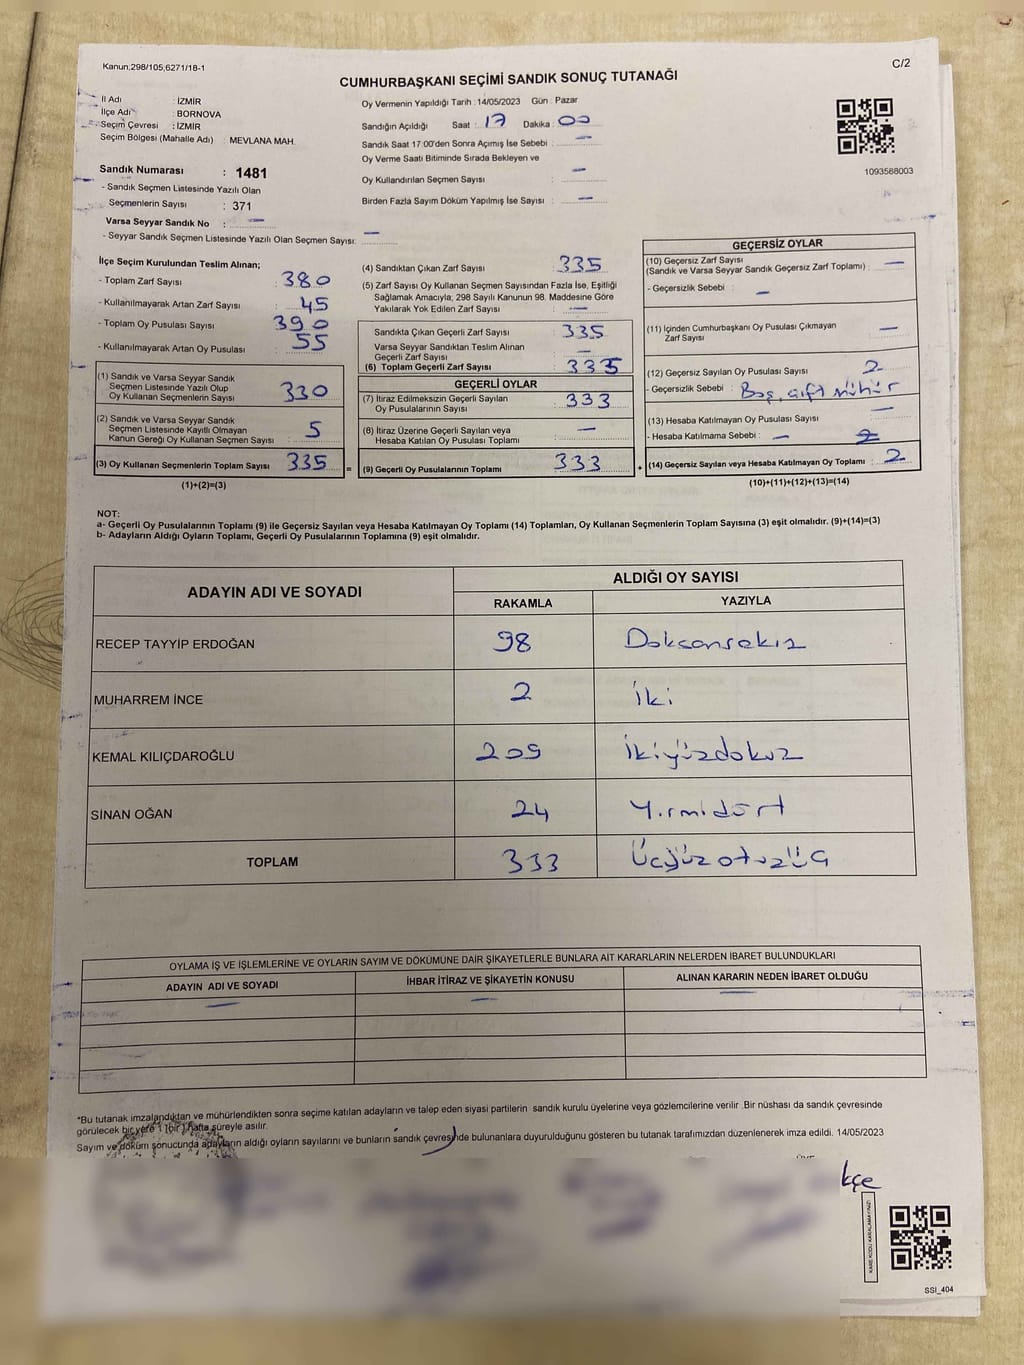 Kanun,298/105,6271/18-1
C/2
CUMHURBAŞKANI SEÇİMİ SANDIK SONUÇ TUTANAĞI
İl Adı : İZMİR
İlçe Adı : BORNOVA
Seçim Çevresi : İZMİR
Seçim Bölgesi (Mahalle Adı) : MEVLANA MAH.
Oy Vermenin Yapıldığı Tarih : 14/05/2023 Gün : Pazar
Sandığın Açıldığı Saat : 17 Dakika : 00
Sandık Saat 17:00'den Sonra Açımış İse Sebebi : —
Oy Verme Saati Bitiminde Sırada Bekleyen ve
Oy Kullandırılan Seçmen Sayısı : —
Birden Fazla Sayım Döküm Yapılmış İse Sayısı : —
1093588003
Sandık Numarası : 1481
- Sandık Seçmen Listesinde Yazılı Olan
Seçmenlerin Sayısı : 371
Varsa Seyyar Sandık No : —
- Seyyar Sandık Seçmen Listesinde Yazılı Olan Seçmen Sayısı: —
İlçe Seçim Kurulundan Teslim Alınan;
- Toplam Zarf Sayısı : 380
- Kullanılmayarak Artan Zarf Sayısı : 45
- Toplam Oy Pusulası Sayısı : 390
- Kullanılmayarak Artan Oy Pusulası : 55
(1) Sandık ve Varsa Seyyar Sandık
Seçmen Listesinde Yazılı Olup
Oy Kullanan Seçmenlerin Sayısı : 330
(2) Sandık ve Varsa Seyyar Sandık
Seçmen Listesinde Kayıtlı Olmayan
Kanun Gereği Oy Kullanan Seçmen Sayısı : 5
(3) Oy Kullanan Seçmenlerin Toplam Sayısı : 335 =
(1)+(2)=(3)
(4) Sandıktan Çıkan Zarf Sayısı : 335
(5) Zarf Sayısı Oy Kullanan Seçmen Sayısından Fazla İse, Eşitliği
Sağlamak Amacıyla, 298 Sayılı Kanunun 98. Maddesine Göre
Yakılarak Yok Edilen Zarf Sayısı : —
Sandıkta Çıkan Geçerli Zarf Sayısı : 335
Varsa Seyyar Sandıktan Teslim Alınan
Geçerli Zarf Sayısı : —
(6) Toplam Geçerli Zarf Sayısı : 335
GEÇERLİ OYLAR
(7) İtiraz Edilmeksizin Geçerli Sayılan
Oy Pusulalarının Sayısı : 333
(8) İtiraz Üzerine Geçerli Sayılan veya
Hesaba Katılan Oy Pusulası Toplamı : —
(9) Geçerli Oy Pusulalarının Toplamı : 333 +
GEÇERSİZ OYLAR
(10) Geçersiz Zarf Sayısı
(Sandık ve Varsa Seyyar Sandık Geçersiz Zarf Toplamı) : —
- Geçersizlik Sebebi : —
(11) İçinden Cumhurbaşkanı Oy Pusulası Çıkmayan
Zarf Sayısı : —
(12) Geçersiz Sayılan Oy Pusulası Sayısı : 2
- Geçersizlik Sebebi : Boş, çift mühür
(13) Hesaba Katılmayan Oy Pusulası Sayısı : —
- Hesaba Katılmama Sebebi : —
(14) Geçersiz Sayılan veya Hesaba Katılmayan Oy Toplamı : 2
(10)+(11)+(12)+(13)=(14)
NOT:
a- Geçerli Oy Pusulalarının Toplamı (9) ile Geçersiz Sayılan veya Hesaba Katılmayan Oy Toplamı (14) Toplamları, Oy Kullanan Seçmenlerin Toplam Sayısına (3) eşit olmalıdır. (9)+(14)=(3)
b- Adayların Aldığı Oyların Toplamı, Geçerli Oy Pusulalarının Toplamına (9) eşit olmalıdır.
ADAYIN ADI VE SOYADI
ALDIĞI OY SAYISI
RAKAMLA YAZIYLA
RECEP TAYYİP ERDOĞAN 98 Doksansekiz
MUHARREM İNCE 2 İki
KEMAL KILIÇDAROĞLU 209 İkiyüzdokuz
SİNAN OĞAN 24 Yirmidört
TOPLAM 333 Üçyüzotuzüç
OYLAMA İŞ VE İŞLEMLERİNE VE OYLARIN SAYIM VE DÖKÜMÜNE DAİR ŞİKAYETLERLE BUNLARA AİT KARARLARIN NELERDEN İBARET BULUNDUKLARI
ADAYIN ADI VE SOYADI İHBAR İTİRAZ VE ŞİKAYETİN KONUSU ALINAN KARARIN NEDEN İBARET OLDUĞU
— — —
*Bu tutanak imzalandıktan ve mühürlendikten sonra seçime katılan adayların ve talep eden siyasi partilerin sandık kurulu üyelerine veya gözlemcilerine verilir .Bir nüshası da sandık çevresinde
görülecek bir yere 1 (bir ) hafta süreyle asılır.
Sayım ve döküm sonucunda adayların aldığı oyların sayılarını ve bunların sandık çevresinde bulunanlara duyurulduğunu gösteren bu tutanak tarafımızdan düzenlenerek imza edildi. 14/05/2023
kçe
SSI_404